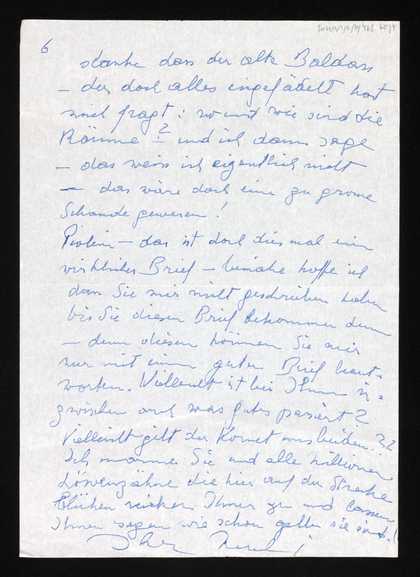 6
danke dass der alte Baldass
– der doch alles eingefädelt hat
mich fragt: wo und wie sind die
Räume? und ich dann sage
– das weiss ich eigentlich nicht
– das wäre doch eine zu grosse
Schande gewesen!
– das ist doch diesmal ein
wirklicher Brief – beinahe hoffe ich
dass Sie mir nicht geschrieben haben
bis Sie diesen Brief bekommen denn
– denn diesen können Sie mir
nur mit einem guten Brief beant-
worten. Vielleicht ist bei Ihnen in-
zwischen auch was gutes passiert?
Vielleicht gilt der Komet uns beiden. ??
Ich Sie und alle Millionen
Löwenzähne die hier auf der Strecke
blühen nicken Ihnen zu und lassen
Ihnen sagen wie schön gelb sie sind!
Ihr